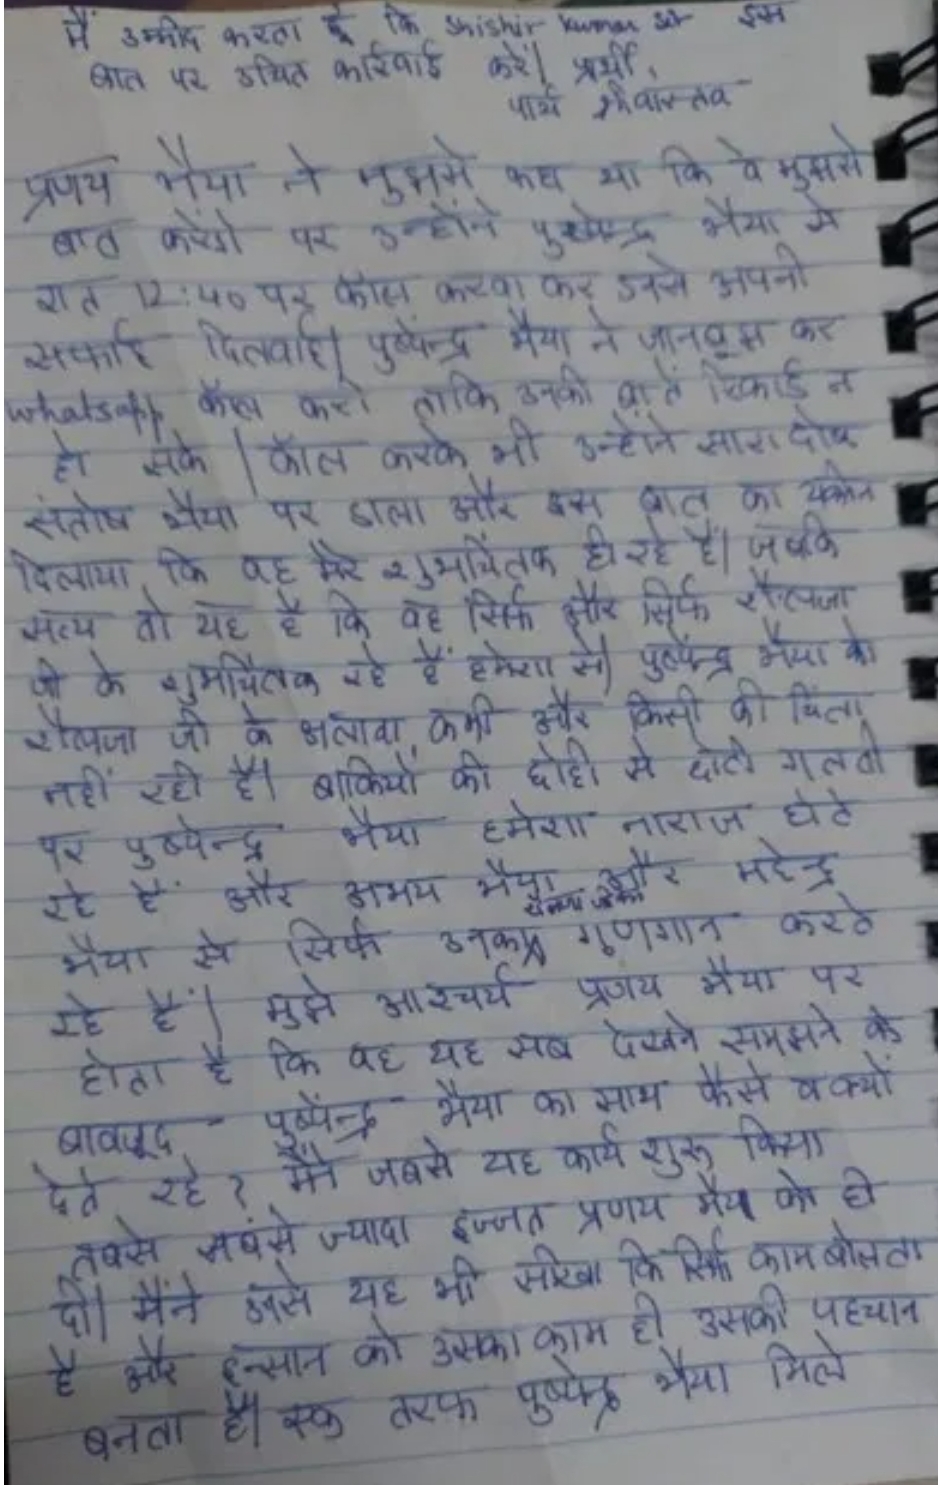 मैं उम्मीद करता हूँ कि Shishir Kumar sir इस
बात पर उचित कार्रवाई करें। प्रार्थी,
पार्थ श्रीवास्तव
प्रणय भैया ने मुझसे कहा था कि वे मुझसे
बात करेंगे पर उन्होंने पुष्पेन्द्र भैया से
रात 12:40 पर कॉल करवा कर उनसे अपनी
सफाई दिलवाई। पुष्पेन्द्र भैया ने जानबूझ कर
whatsapp कॉल करी ताकि उनकी बातें रिकार्ड न
हो सके। कॉल करके भी उन्होंने सारा दोष
संतोष भैया पर डाला और इस बात का यकीन
दिलाया कि वह मेरे शुभचिंतक ही रहे हैं। जबकि
सत्य तो यह है कि वह सिर्फ और सिर्फ शैलजा
जी के शुभचिंतक रहे हैं हमेशा से। पुष्पेन्द्र भैया को
शैलजा जी के अलावा कभी और किसी की चिंता
नहीं रही है। बाकियों की छोटी से छोटी गलती
पर पुष्पेन्द्र भैया हमेशा नाराज होते
रहे हैं और अभय भैया और महेन्द्र
भैया से सिर्फ उनका गुणगान करते
रहे हैं। मुझे आश्चर्य प्रणय भैया पर
होता है कि वह यह सब देखने समझने के
बावजूद पुष्पेन्द्र भैया का साथ कैसे व क्यों
देते रहे? मैंने जबसे यह कार्य शुरू किया
तबसे सबसे ज्यादा इज्जत प्रणय भैया को ही
दी। मैंने उनसे यह भी सीखा कि सिर्फ काम बोलता
है और इन्सान को उसका काम ही उसकी पहचान
बनता है। एक तरफ पुष्पेन्द्र भैया मिले